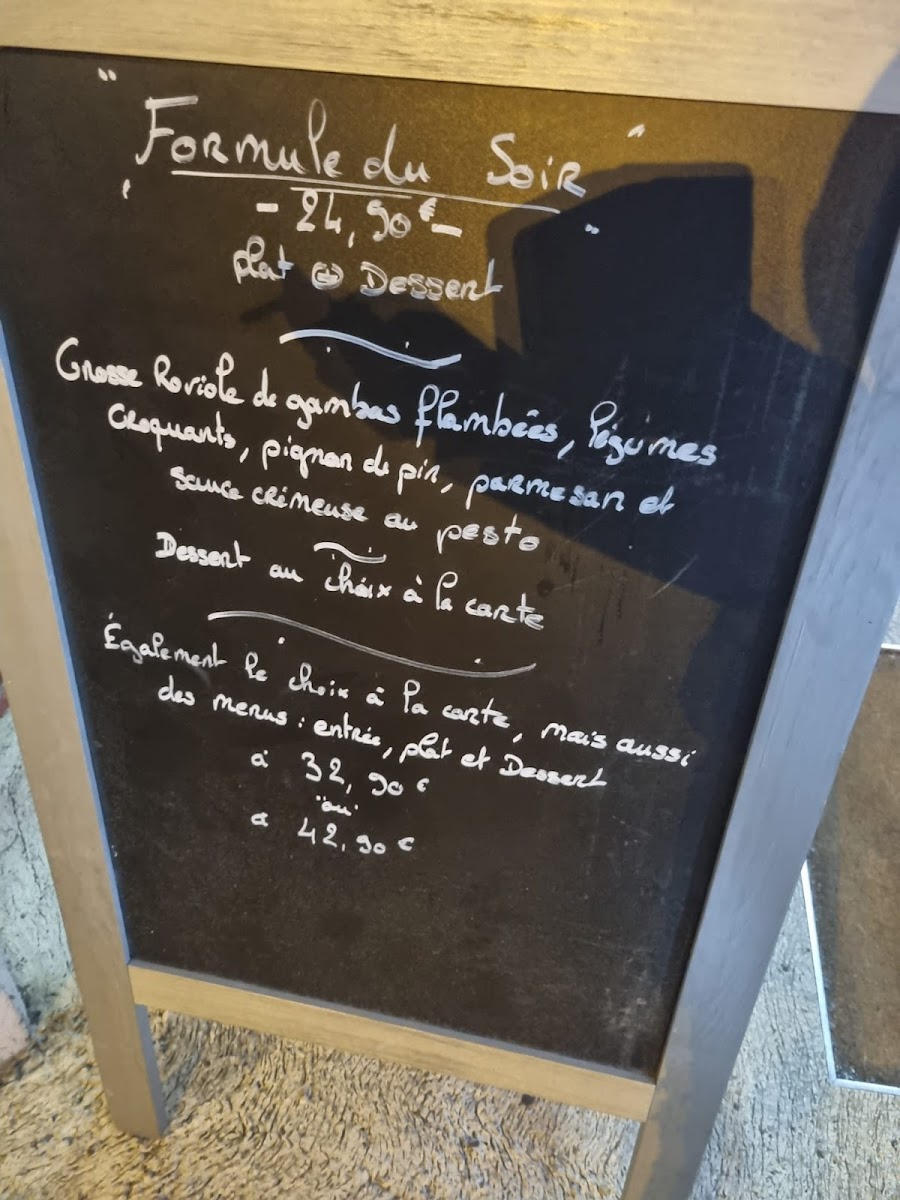 "Formule du Soir"
- 24,90€ -
plat + Dessert
Grosse Raviole de gambas flambées, légumes
croquants, pignon de pin, parmesan et
sauce crémeuse au pesto
Dessert au choix à la carte
Également le choix à la carte, mais aussi
des menus : entrée, plat et Dessert
à 32,90 €
"ou"
à 42,90 €